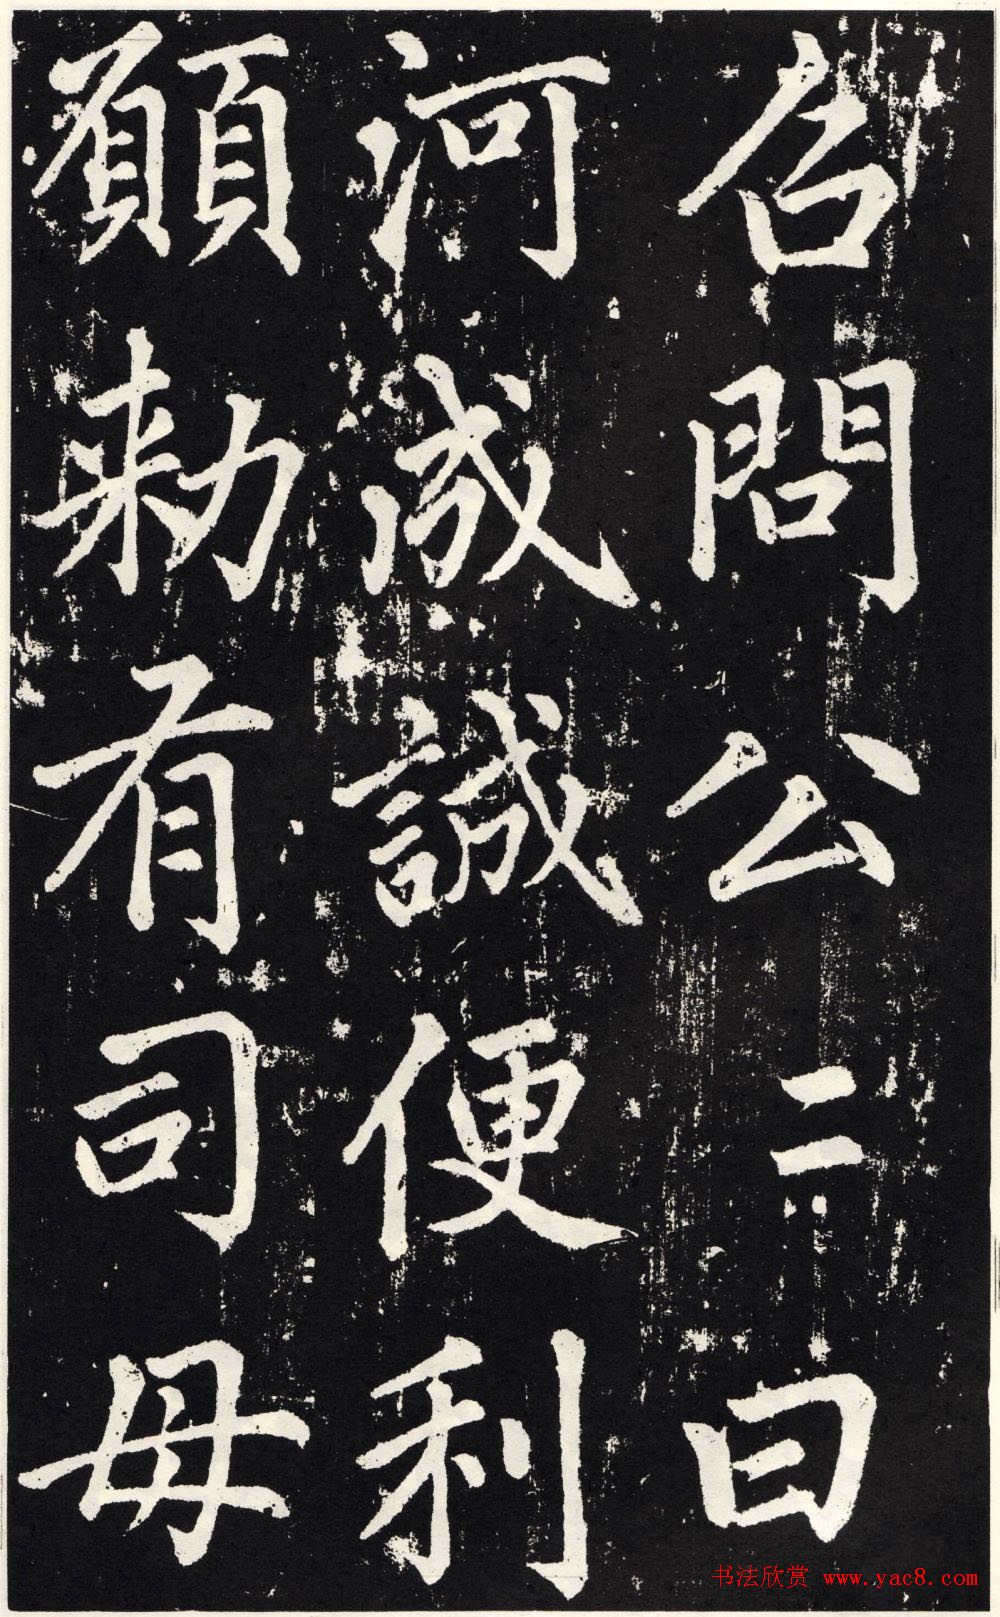 召問公二曰
河成誠便利
願勅有司毋
书法欣赏 www.yac8.com